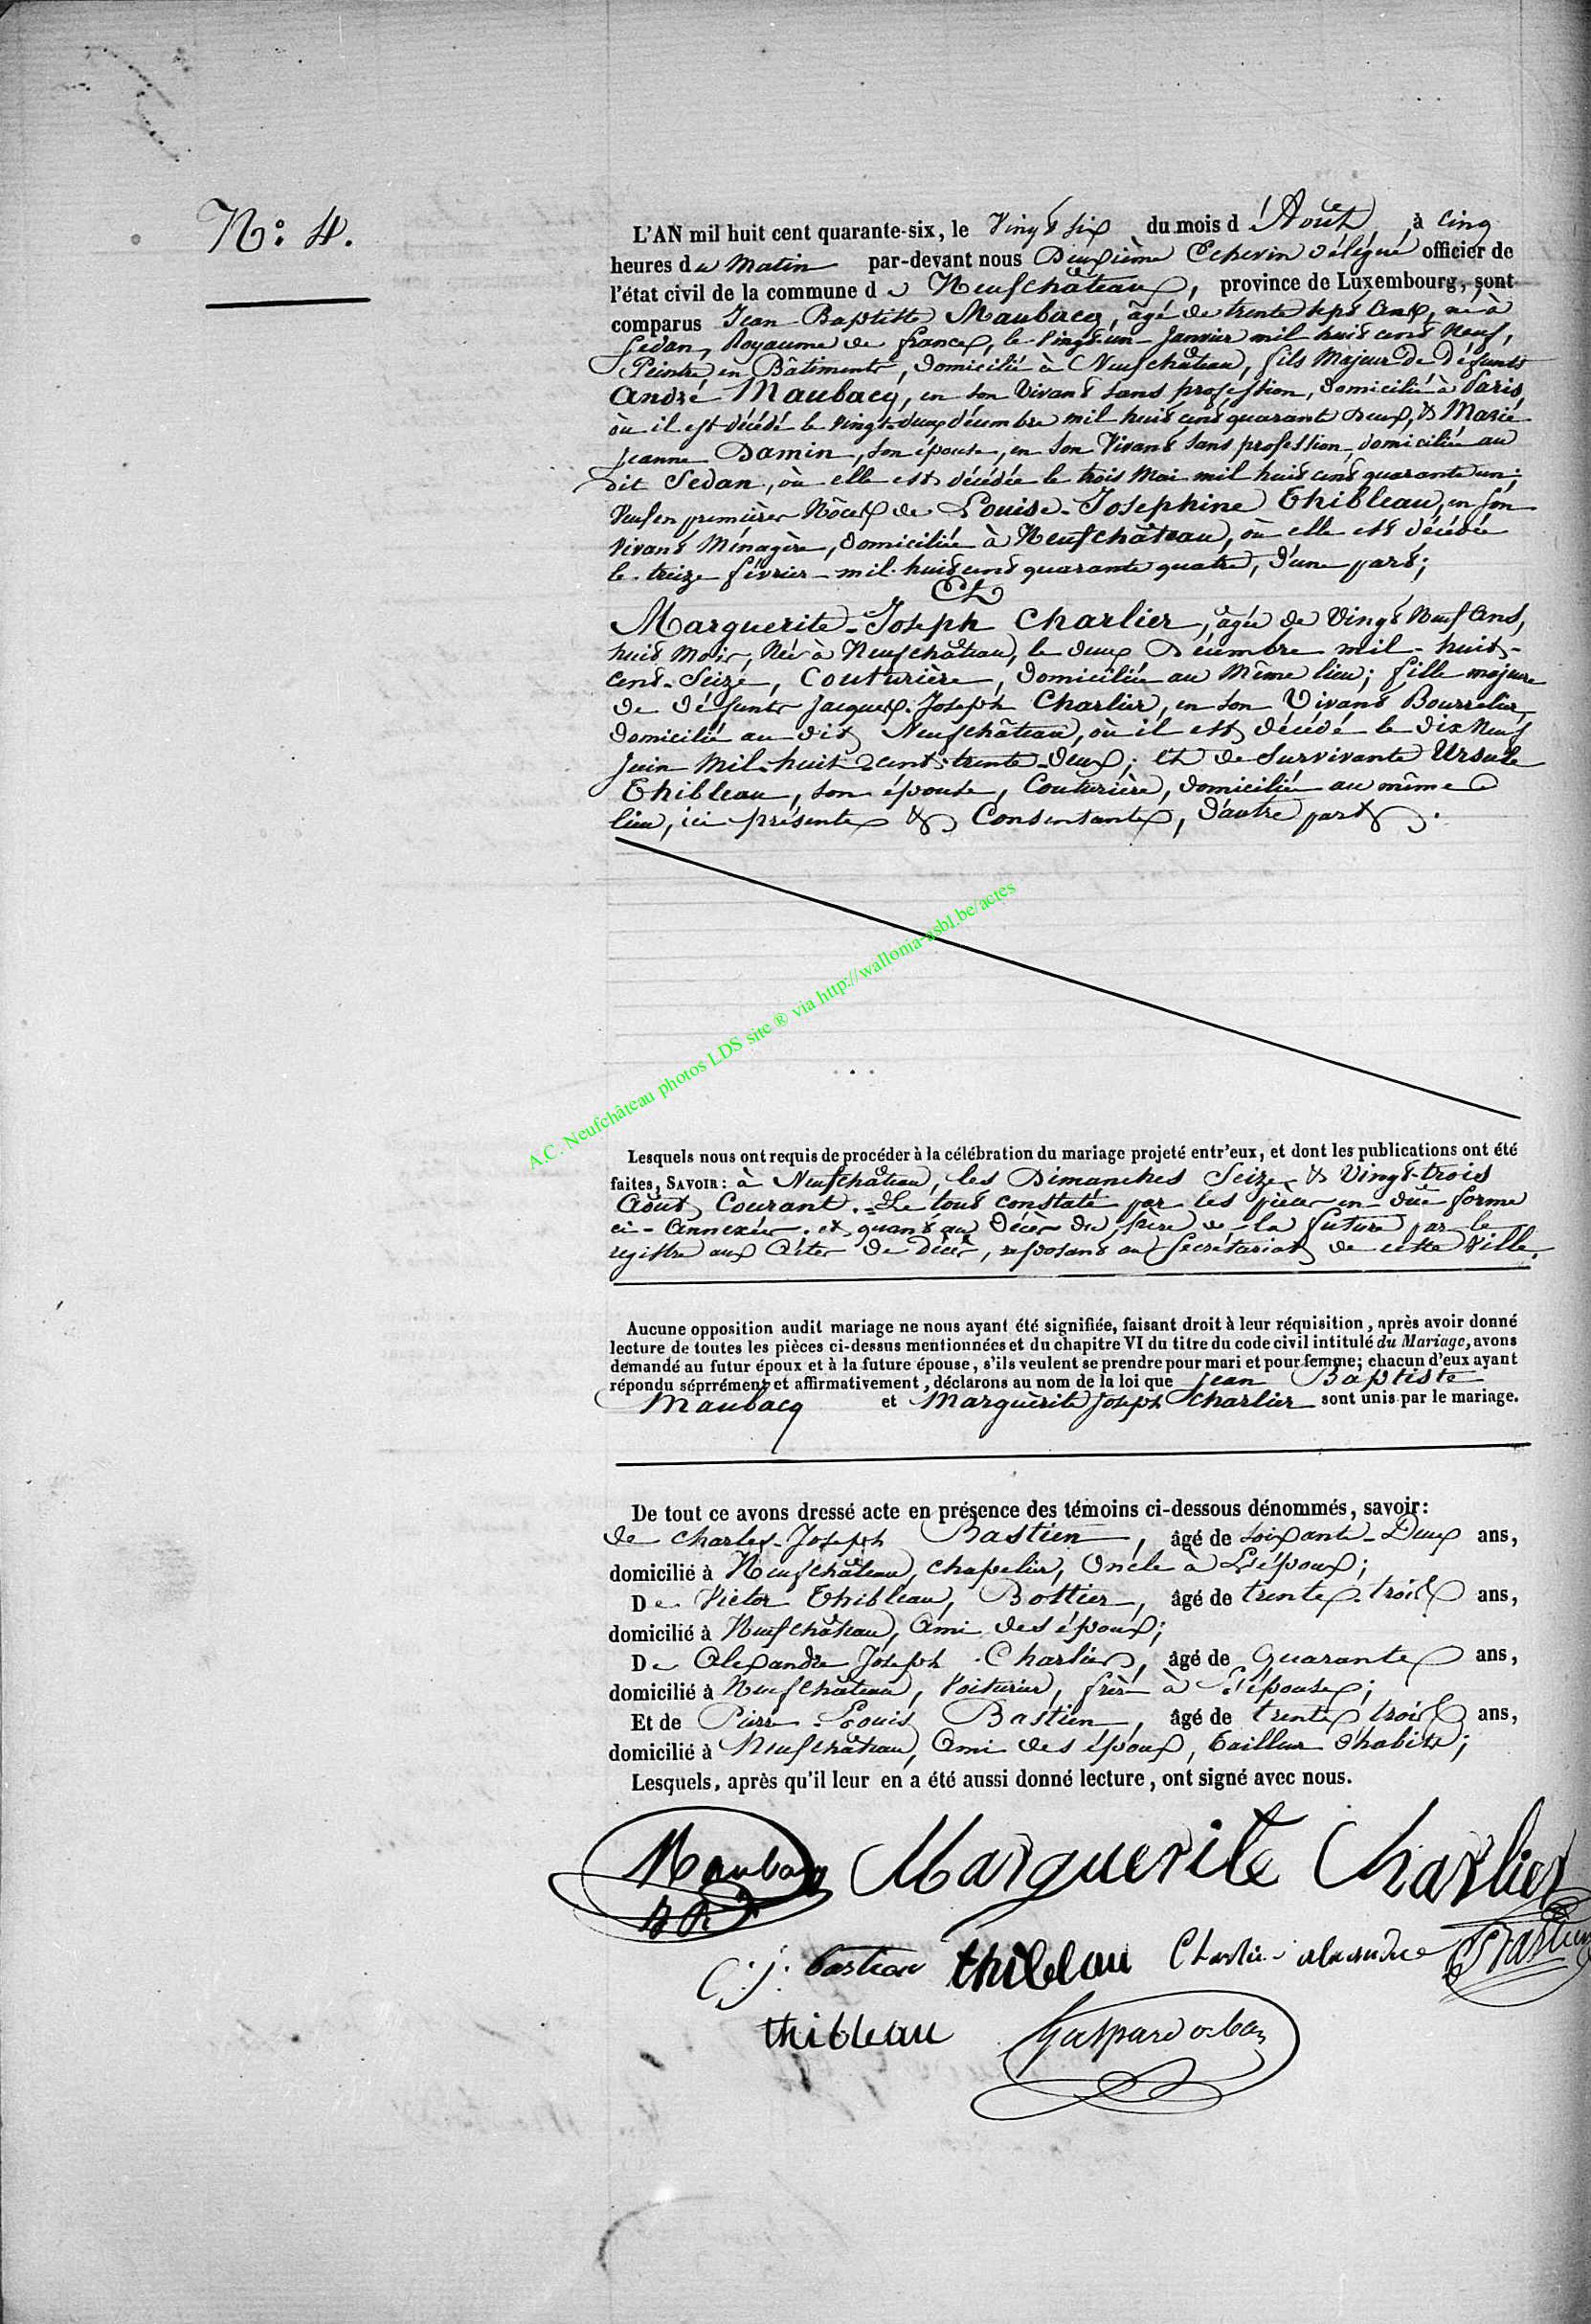 N.o 4.
L'AN mil huit cent quarante-six, le Vingt six du mois d'Août, à Cinq
heures du Matin par-devant nous Deuxième Echevin délégué officier de
l'état civil de la commune de Neufchâteau, province de Luxembourg, sont
comparus Jean Baptiste Maubacq, âgé de trente sept Ans, né à
Sedan, Royaume de france, le Vingt-un Janvier mil huit cent Neuf,
Peintre en Bâtiments, Domicilié à Neufchâteau, fils Majeur De Défunts
André Maubacq, en son Vivant sans profession, domicilié à Paris,
où il est décédé le vingt-deux décembre mil huit cent quarant Deux, & Marie
Jeanne Damin, son épouse, en son Vivant sans profession, domiciliée au
dit Sedan, où elle est décédée le trois Mai mil huit cent quarante un;
Veuf en premières Nôces de Louise-Josephine Thibleau, en son
vivant Ménagère, domiciliée à Neufchâteau, où elle est décédée
le treize février mil huit cent quarante quatre, d'une part;
Et
Marguerite-Joseph Charlier, âgée de Vingt Neuf Ans,
huit Mois, Née à Neufchâteau, le deux Décembre mil-huit-
cent-Seize, Couturière, domiciliée au Même lieu; fille majeure
de défunt Jacques-Joseph Charlier, en son Vivant Bourrelier,
domicilié au dit Neufchâteau, où il est décédé le dix Neuf
Juin Mil-huit-cent-trente-deux; et de Survivante Ursule
Thibleau, son épouse, Couturière, domiciliée au même
lieu, ici présente & Consentante, d'autre part.
A.C. Neufchâteau photos LDS site ® via http://wallonia-asbl.be/actes
Lesquels nous ont requis de procéder à la célébration du mariage projeté entr'eux, et dont les publications ont été
faites, SAVOIR: à Neufchâteau, les Dimanches Seize & Vingt-trois
Août Courant. Le tout constaté par les pièces en due forme
ci-Annexées. et quant au Décès du père de la future par le
registre aux Actes de Décès, reposant au Secrétariat de cette Ville.
Aucune opposition audit mariage ne nous ayant été signifiée, faisant droit à leur réquisition, après avoir donné
lecture de toutes les pièces ci-dessus mentionnées et du chapitre VI du titre du code civil intitulé du Mariage, avons
demandé au futur époux et à la future épouse, s'ils veulent se prendre pour mari et pour femme; chacun d'eux ayant
répondu séprrément et affirmativement, déclarons au nom de la loi que Jean Baptiste
Maubacq et Marguèrite Joseph Charlier sont unis par le mariage.
De tout ce avons dressé acte en présence des témoins ci-dessous dénommés, savoir:
de Charles-Joseph Bastien, âgé de soixante-Deux ans,
domicilié à Neufchâteau, chapelier, Oncle à L'époux;
De Victor Thibleau, Bottier, âgé de trente-trois ans,
domicilié à Neufchâteau, Ami des époux;
De Alexandre Joseph Charlier, âgé de Quarante ans,
domicilié à Neufchâteau, Voiturier, frère à l'épouse;
Et de Pierre-Louis Bastien, âgé de trente trois ans,
domicilié à Neufchâteau, Ami des époux, tailleur d'habits;
Lesquels, après qu'il leur en a été aussi donné lecture, ont signé avec nous.
Maubacq Marguerite Charlier
C. J. bastien thibleau Charlier alexandre Bastien
thibleau Gaspard